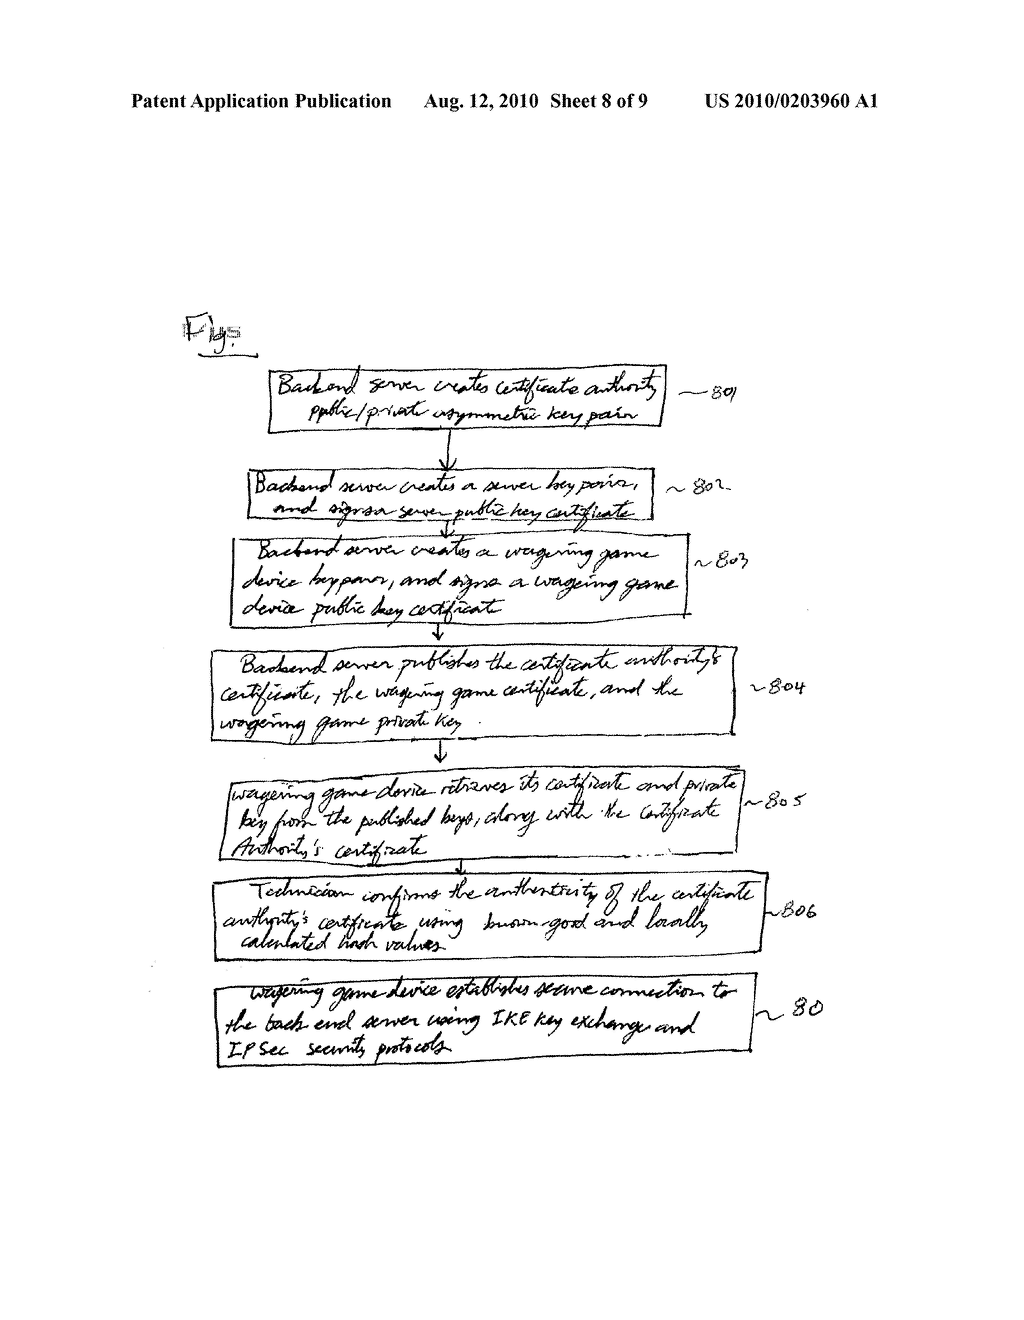 Patent Application Publication Aug. 12, 2010 Sheet 8 of 9 US 2010/0203960 A1
Fig.
Backend server creates certificate authority
public/private asymmetric key pair
801
Backend server creates a server key pair,
and signs a server public key certificate
802
Backend server creates a wagering game
device key pair, and signs a wagering game
device public key certificate
803
Backend server publishes the certificate authority's
certificate, the wagering game certificate, and the
wagering game private key.
804
wagering game device retrieves its certificate and private
key from the published keys, along with the certificate
Authority's certificate
805
Technician confirms the authenticity of the certificate
authority's certificate using known-good and locally
calculated hash values
806
wagering game device establishes secure connection to
the back end server using IKE key exchange and
IPSec security protocols
80